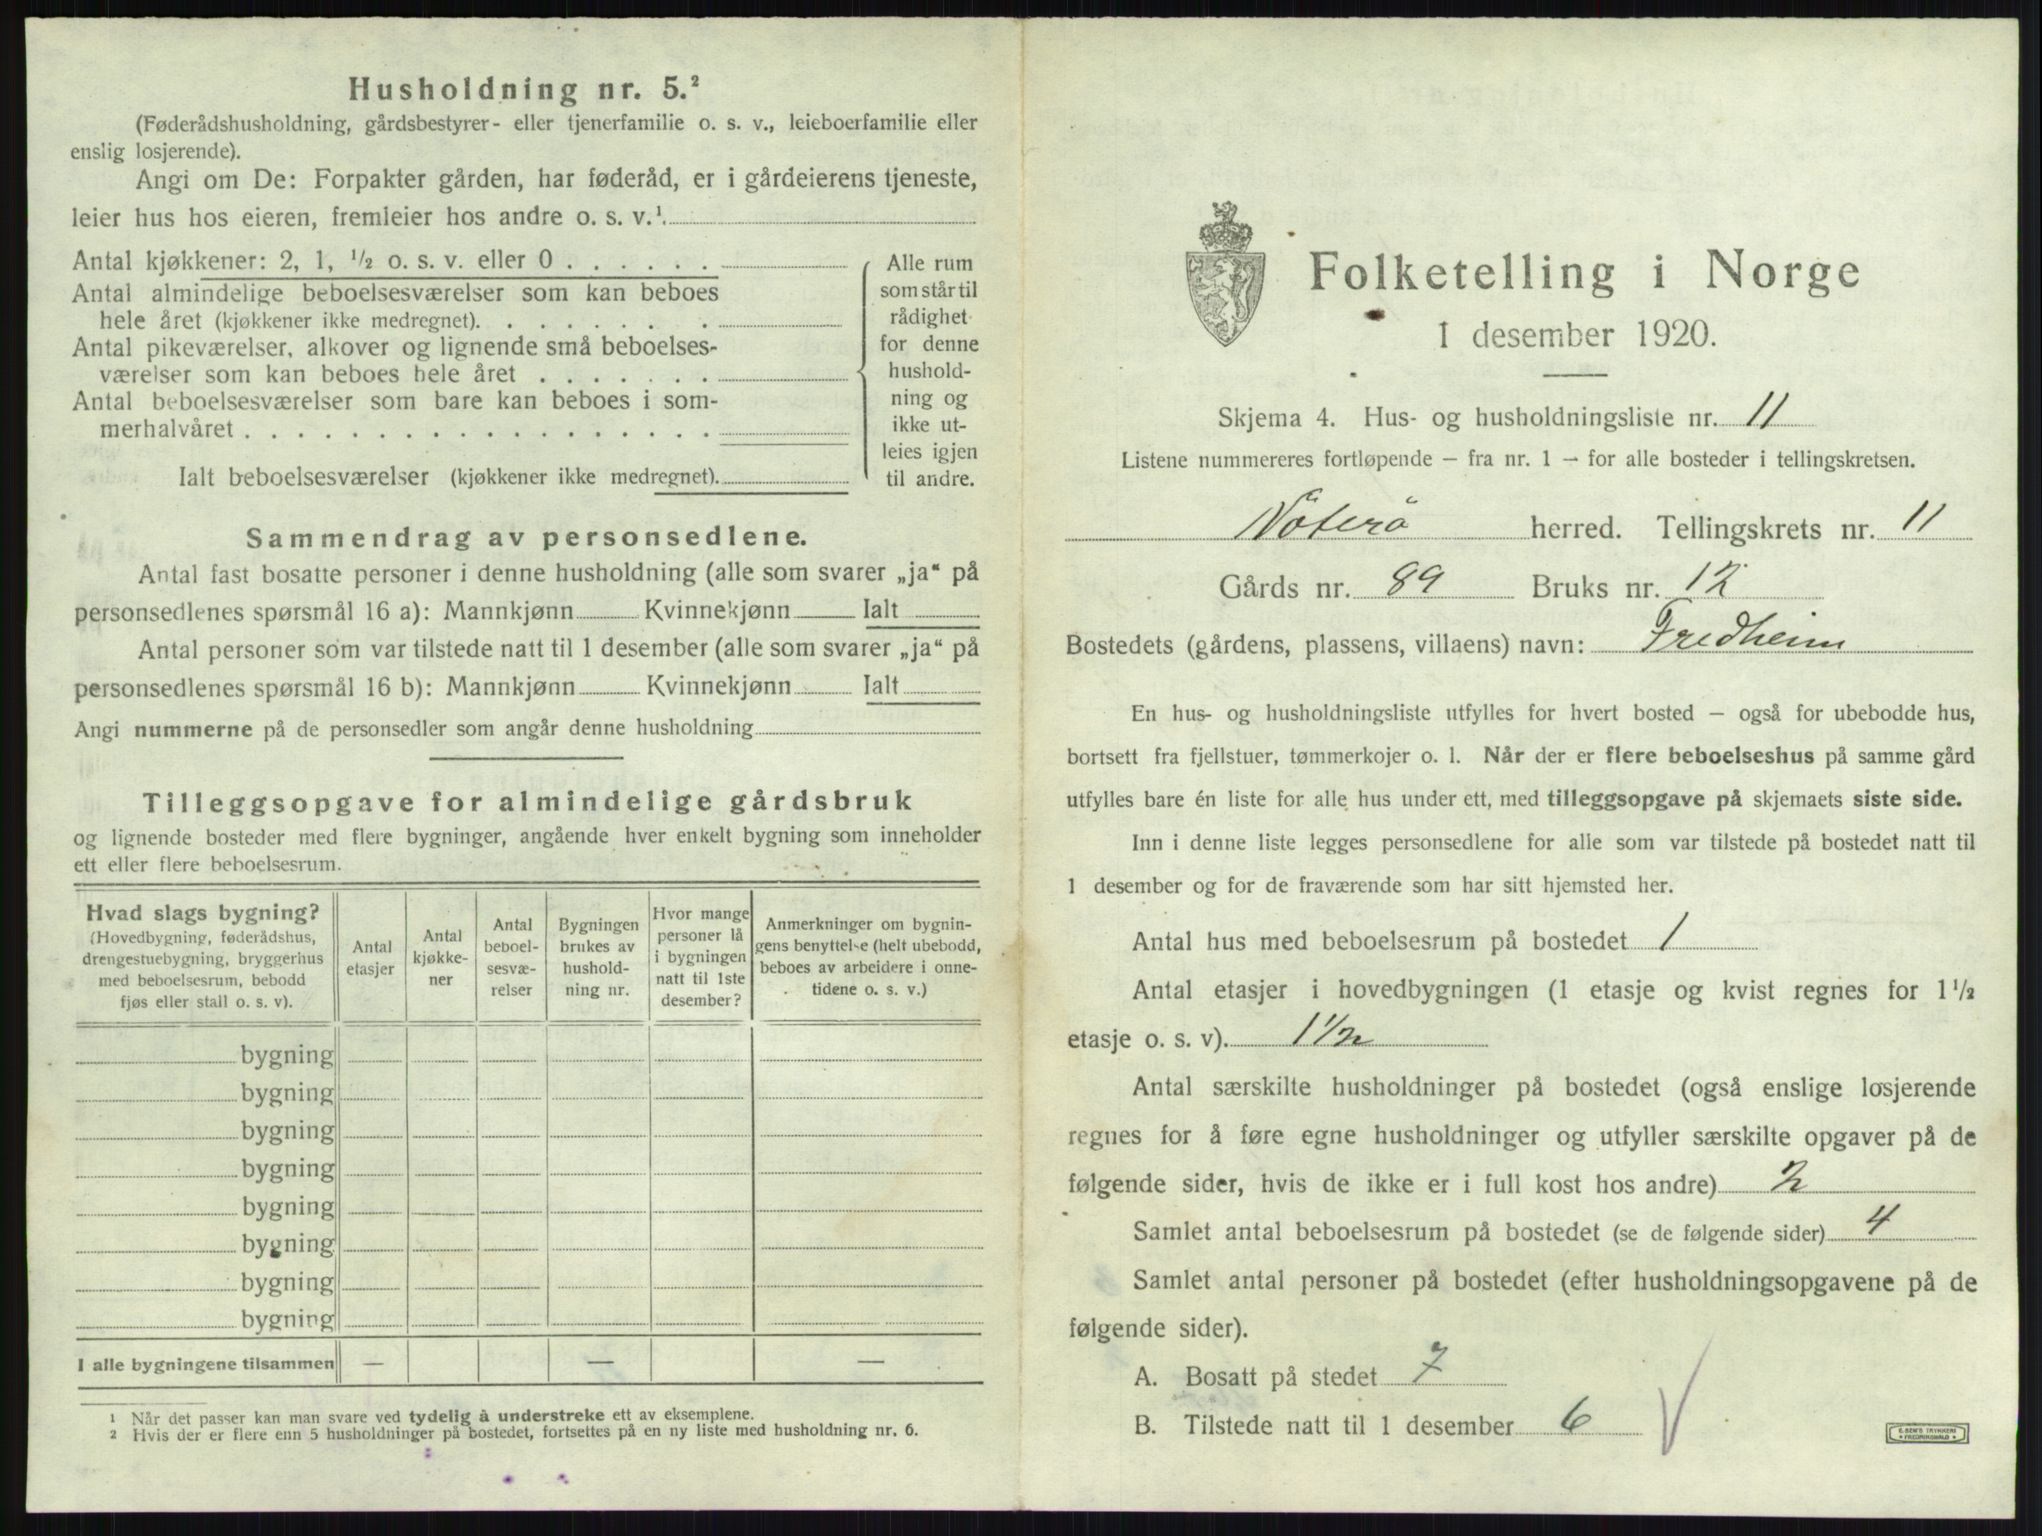 Husholdning nr. 5.²
(Føderådshusholdning, gårdsbestyrer- eller tjenerfamilie o. s. v., leieboerfamilie eller
enslig losjerende).
Angi om De: Forpakter gården, har føderåd, er i gårdeierens tjeneste,
leier hus hos eieren, fremleier hos andre o. s. v.¹.
Antal kjøkkener: 2, 1, ½ o. s. v. eller 0 . . . . . .
Antal almindelige beboelsesværelser som kan beboes
hele året (kjøkkener ikke medregnet). . . . . . . .
Antal pikeværelser, alkover og lignende små beboelses-
værelser som kan beboes hele året . . . . . . .
Antal beboelsesværelser som bare kan beboes i som-
merhalvåret . . . . . . . . . . . . . . . . . .
Ialt beboelsesværelser (kjøkkener ikke medregnet).
Alle rum
som står til
rådighet
for denne
hushold-
ning og
ikke ut-
leies igjen
til andre.
Sammendrag av personsedlene.
Antal fast bosatte personer i denne husholdning (alle som svarer „ja“ på
personsedlenes spørsmål 16 a): Mannkjønn Kvinnekjønn Ialt
Antal personer som var tilstede natt til 1 desember (alle som svarer „ja“ på
personsedlenes spørsmål 16 b): Mannkjønn Kvinnekjønn Ialt
Angi nummerne på de personsedler som angår denne husholdning
Tilleggsopgave for almindelige gårdsbruk
og lignende bosteder med flere bygninger, angående hver enkelt bygning som inneholder
ett eller flere beboelsesrum.
Hvad slags bygning?
(Hovedbygning, føderådshus,
drengestuebygning, bryggerhus
med beboelsesrum, bebodd
fjøs eller stall o. s. v).
Antal
etasjer
Antal
kjøkke-
ner
Antal
beboel-
sesvæ-
relser
Bygningen
brukes av
hushold-
ning nr.
Hvor mange
personer lå
i bygningen
natt til 1ste
desember?
Anmerkninger om bygnin-
gens benyttelse (helt ubebodd,
beboes av arbeidere i onne-
tidene o. s. v.)
bygning
bygning
bygning
bygning
bygning
bygning
bygning
bygning
I alle bygningene tilsammen — — —
¹ Når det passer kan man svare ved tydelig å understreke ett av eksemplene.
² Hvis der er flere enn 5 husholdninger på bostedet, fortsettes på en ny liste med husholdning nr. 6.
Folketelling i Norge
1 desember 1920.
Skjema 4. Hus- og husholdningsliste nr. 11
Listene nummereres fortløpende — fra nr. 1 — for alle bosteder i tellingskretsen.
Nøterö herred. Tellingskrets nr. 11
Gårds nr. 89 Bruks nr. 12
Bostedets (gårdens, plassens, villaens) navn: Fredheim
En hus- og husholdningsliste utfylles for hvert bosted — også for ubebodde hus,
bortsett fra fjellstuer, tømmerkojer o. l. Når der er flere beboelseshus på samme gård
utfylles bare én liste for alle hus under ett, med tilleggsopgave på skjemaets siste side.
Inn i denne liste legges personsedlene for alle som var tilstede på bostedet natt til
1 desember og for de fraværende som har sitt hjemsted her.
Antal hus med beboelsesrum på bostedet 1
Antal etasjer i hovedbygningen (1 etasje og kvist regnes for 1½
etasje o. s. v). 1½
Antal særskilte husholdninger på bostedet (også enslige losjerende
regnes for å føre egne husholdninger og utfyller særskilte opgaver på de
følgende sider, hvis de ikke er i full kost hos andre) 2
Samlet antal beboelsesrum på bostedet (se de følgende sider) 4
Samlet antal personer på bostedet (efter husholdningsopgavene på de
følgende sider).
A. Bosatt på stedet 7
B. Tilstede natt til 1 desember 6